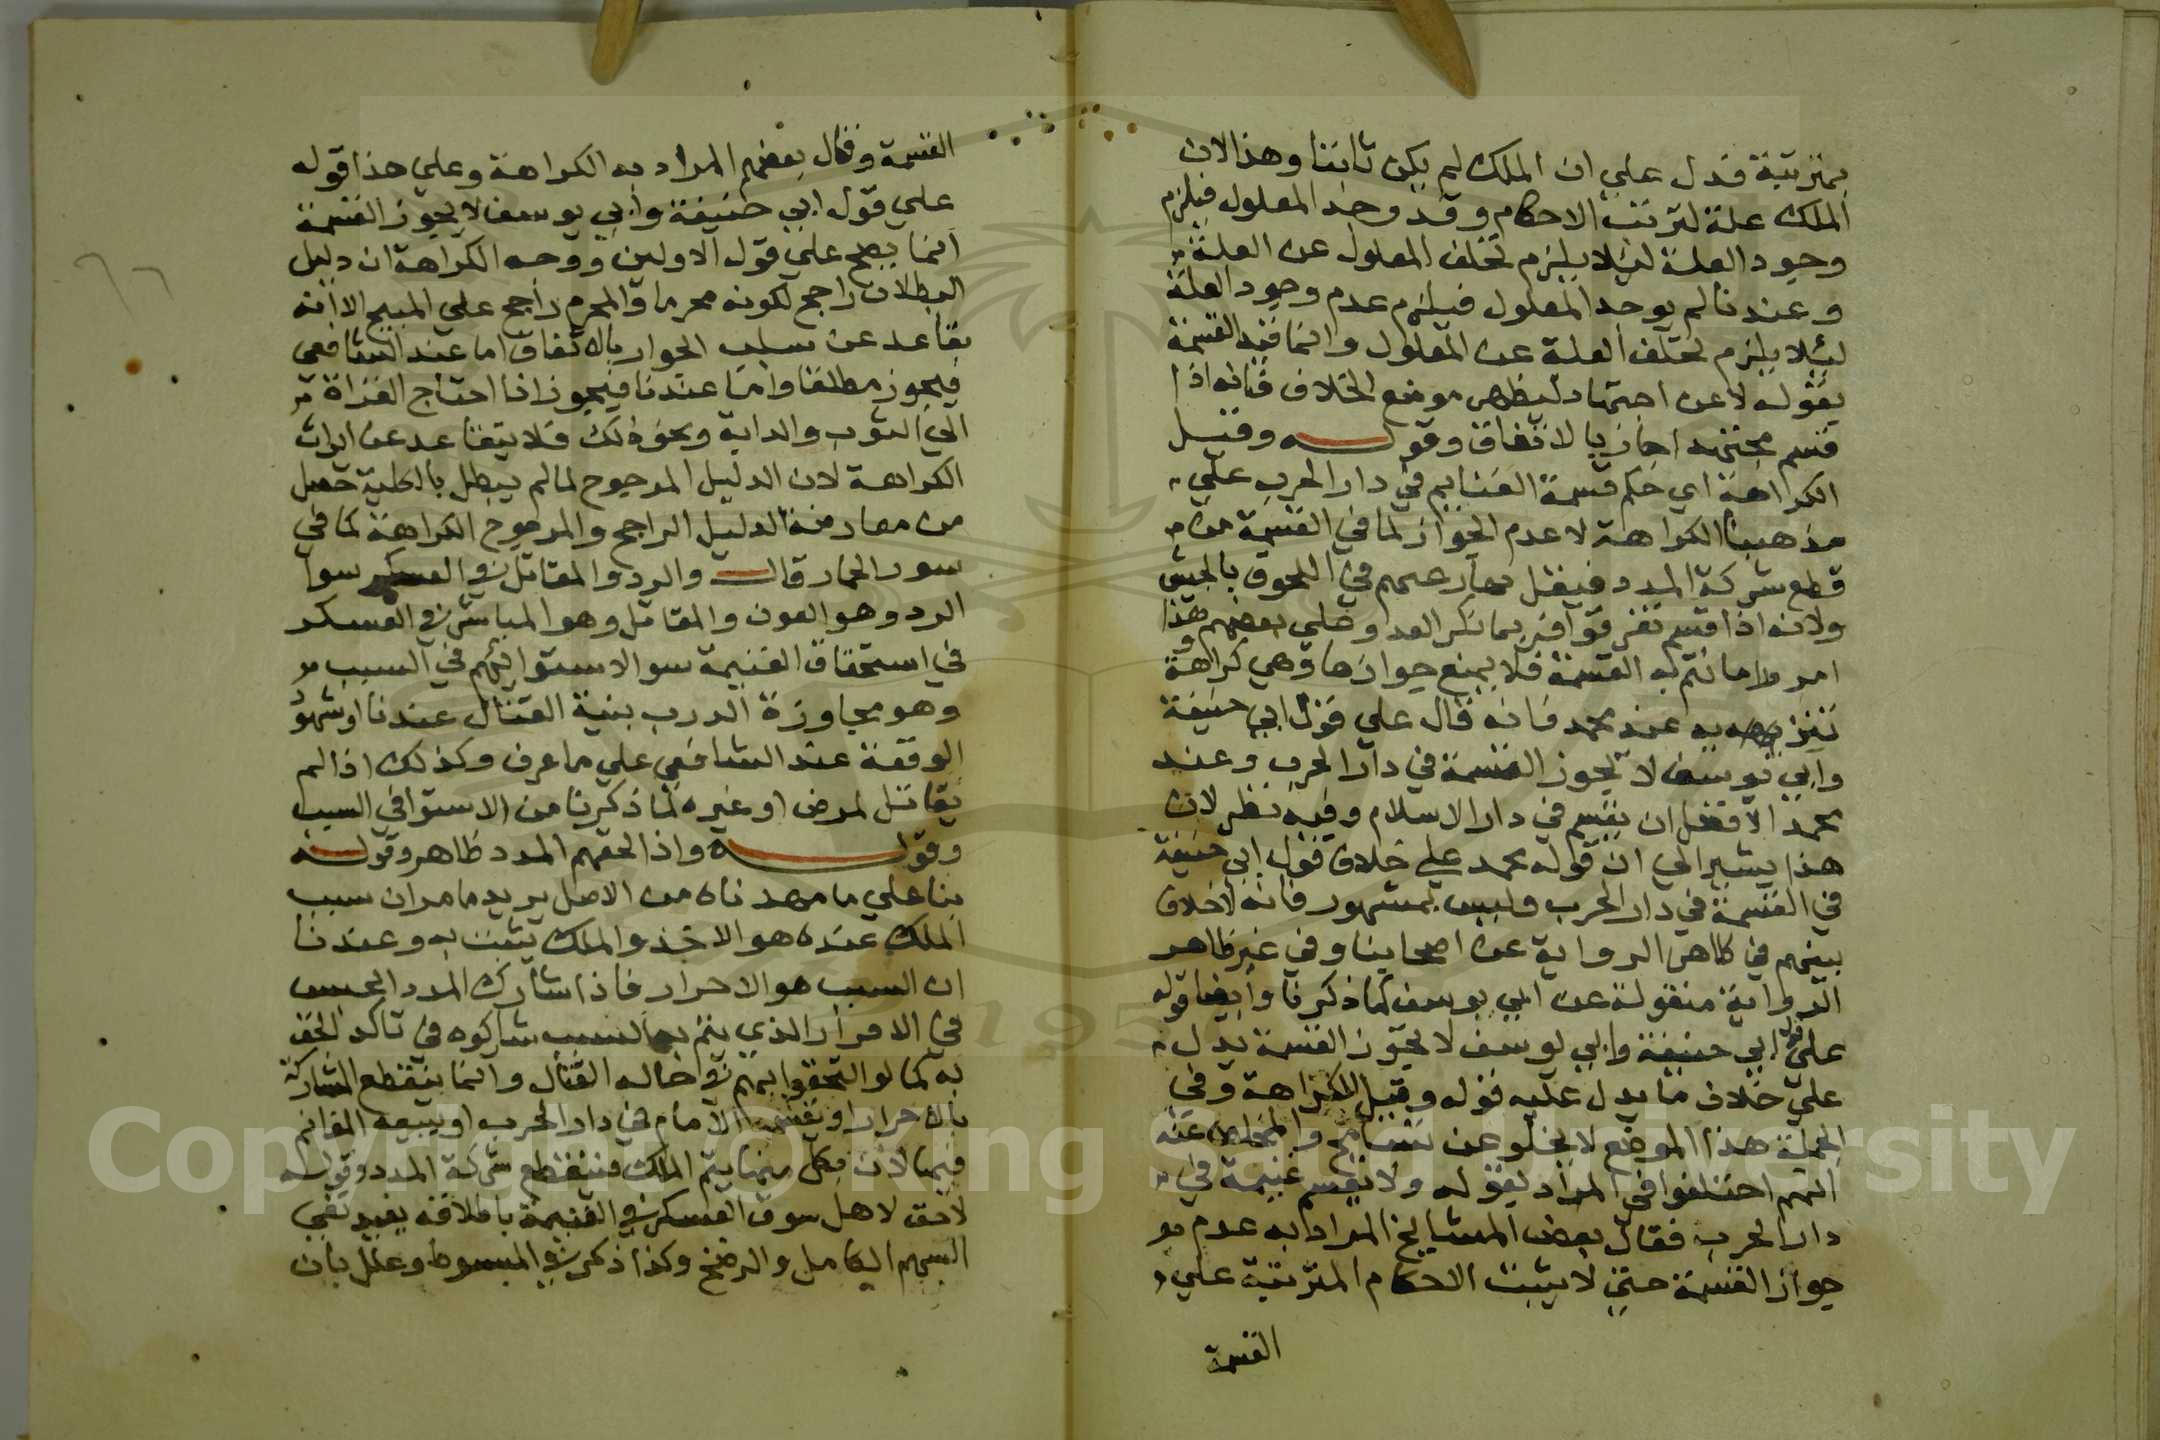 بمترتبة فدل علي ان الملك لم يكن ثابتا وهذا لان
الملك علة لترتب الاحكام وقد وجد المعلول فيلزم
وجود العلة ليلا يلزم تخلف المعلول عن العلة
وعندنا لم يوجد المعلول فيلزم عدم وجود العلة
ليلا يلزم تخلف العلة عن المعلول وانما قيد القسمة
بقوله لا عن اجتهاد ليظهر موضع الخلاف فانه اذا
قسم مجتهدا جاز بالاتفاق وقوله وقيل
الكراهة اي حكم قسمة الغنايم في دار الحرب علي
مذهبنا الكراهة لا عدم الجواز لما في القسمة من
قطع شركة المدد فيقل رغبتهم في اللحوق بالجيش
ولانه اذا قسم تفرقوا فربما يكر العدو علي بعضهم وهذا
امر ورا ما تتم به القسمة فلا يمنع جوازها وهي كراهة
تنزيهية عند محمد فانه قال علي قول ابي حنيفة
وابي يوسف لا تجوز القسمة في دار الحرب وعند
محمد الافضل ان يقسم في دار الاسلام وفيه نظر لان
هذا يشير الي ان قوله محمد علي خلاف قول ابي حنيفة
في القسمة في دار الحرب وليس بمشهور فانه لا خلاف
بينهم في ظاهر الرواية عن اصحابنا وفي غير ظاهر
الرواية منقولة عن ابي يوسف كما ذكرنا وايضا قوله
علي قول ابي حنيفة وابي يوسف لا تجوز القسمة يدل
علي خلاف ما يدل عليه قوله وقيل الكراهة وفي
الجملة هذا الموضع لا يخلو عن تسامح والمخلص عنه
انهم اختلفوا في المراد بقوله ولا يقسم غنيمة في
دار الحرب فقال بعض المشايخ المراد به عدم
جواز القسمة حتي لا يثبت الاحكام المترتبة علي
القسمة
القسمة وقال بعضهم المراد به الكراهة وعلي هذا قوله
علي قول ابي حنيفة وابي يوسف لا يجوز القسمة
انما يصح علي قول الاولين ووجه الكراهة ان دليل
البطلان راجح لكونه محرما والمحرم راجح علي المبيح الا انه
تقاعد عن سلب الجواز بالاتفاق اما عند الشافعي
فيجوز مطلقا واما عندنا فيجوز اذا احتاج الغزاة
الي الثوب والدابة ونحو ذلك فلا يتقاعد عن ايراث
الكراهة لان الدليل المرجوح لما لم يبطل بالكلية حصل
من معارضة الدليل الراجح والمرجوح الكراهة كما في
سور الحمار قال والردء والمقاتل في العسكر سوا
الردء وهو العون والمقاتل وهو المباشر في العسكر
في استحقاق الغنيمة سوا لاستوائهم في السبب
وهو مجاوزة الدرب بنية القتال عندنا او شهود
الوقعة عند الشافعي علي ما عرف وكذلك اذا لم
يقاتل لمرض او غيره لما ذكرنا من الاستوا في السبب
وقوله واذا لحقهم المدد ظاهر وقوله
بنا علي ما مهدناه من الاصل يريد ما مر ان سبب
الملك عنده هو الاخذ والملك يثبت به وعندنا
ان السبب هو الاحراز فاذا شارك المدد الجيش
في الاحراز الذي يتم به السبب شاركوه في تاكد الحق
به كما لو التحقوا بهم في حالة القتال وانما ينقطع المشاركة
بالاحراز او بقسمة الامام في دار الحرب او ببيعه المغانم
فيها لان بكل منها يتم الملك فينقطع شركة المدد وقوله
لا حق لاهل سوق العسكر في الغنيمة باطلاقه يفيد نفي
السهم الكامل والرضخ وكذا ذكر في المبسوط وعلل بان
٦٦
Copyright © King Saud University
1957